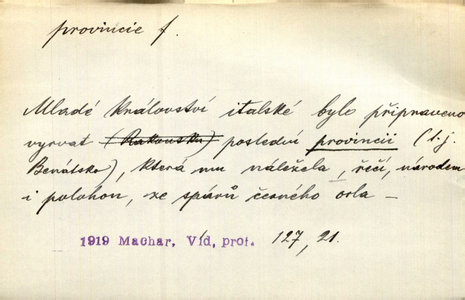 provincie f.
Mladé království italské bylo připraveno
vyrvat (Rakousku) poslední provincii (t. j.
Benátsko), která mu náležela, řečí, národem
i polohou, ze spárů černého orla –
1919 Machar, Víd, prof. 127, 21.